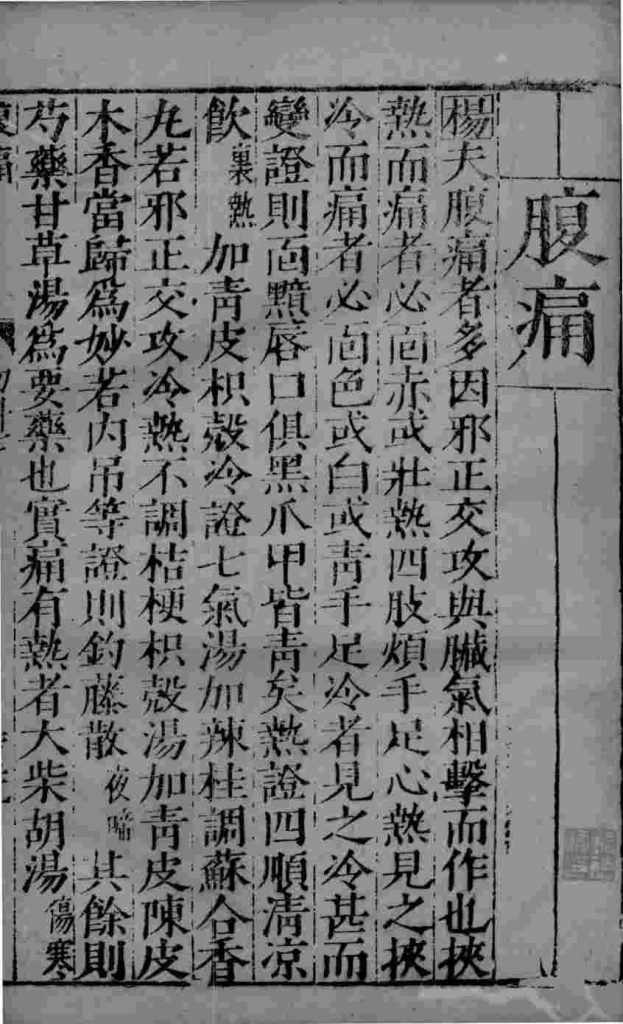 腹痛
楊夫腹痛者多因邪正交攻與臟氣相擊而作也挾
熱而痛者必面赤或壯熱四肢煩手足心熱見之挾
冷而痛者必面色或白或青手足冷者見之冷甚而
變證則面黯唇口俱黑爪甲皆青矣熱證四順清凉
飲裏熱加青皮枳殼冷證七氣湯加辣桂調蘇合香
丸若邪正交攻冷熱不調桔梗枳殼湯加青皮陳皮
木香當歸爲妙若内吊等證則釣藤散夜啼其餘則
芍藥甘草湯爲要藥也實痛有熱者大柴胡湯傷寒